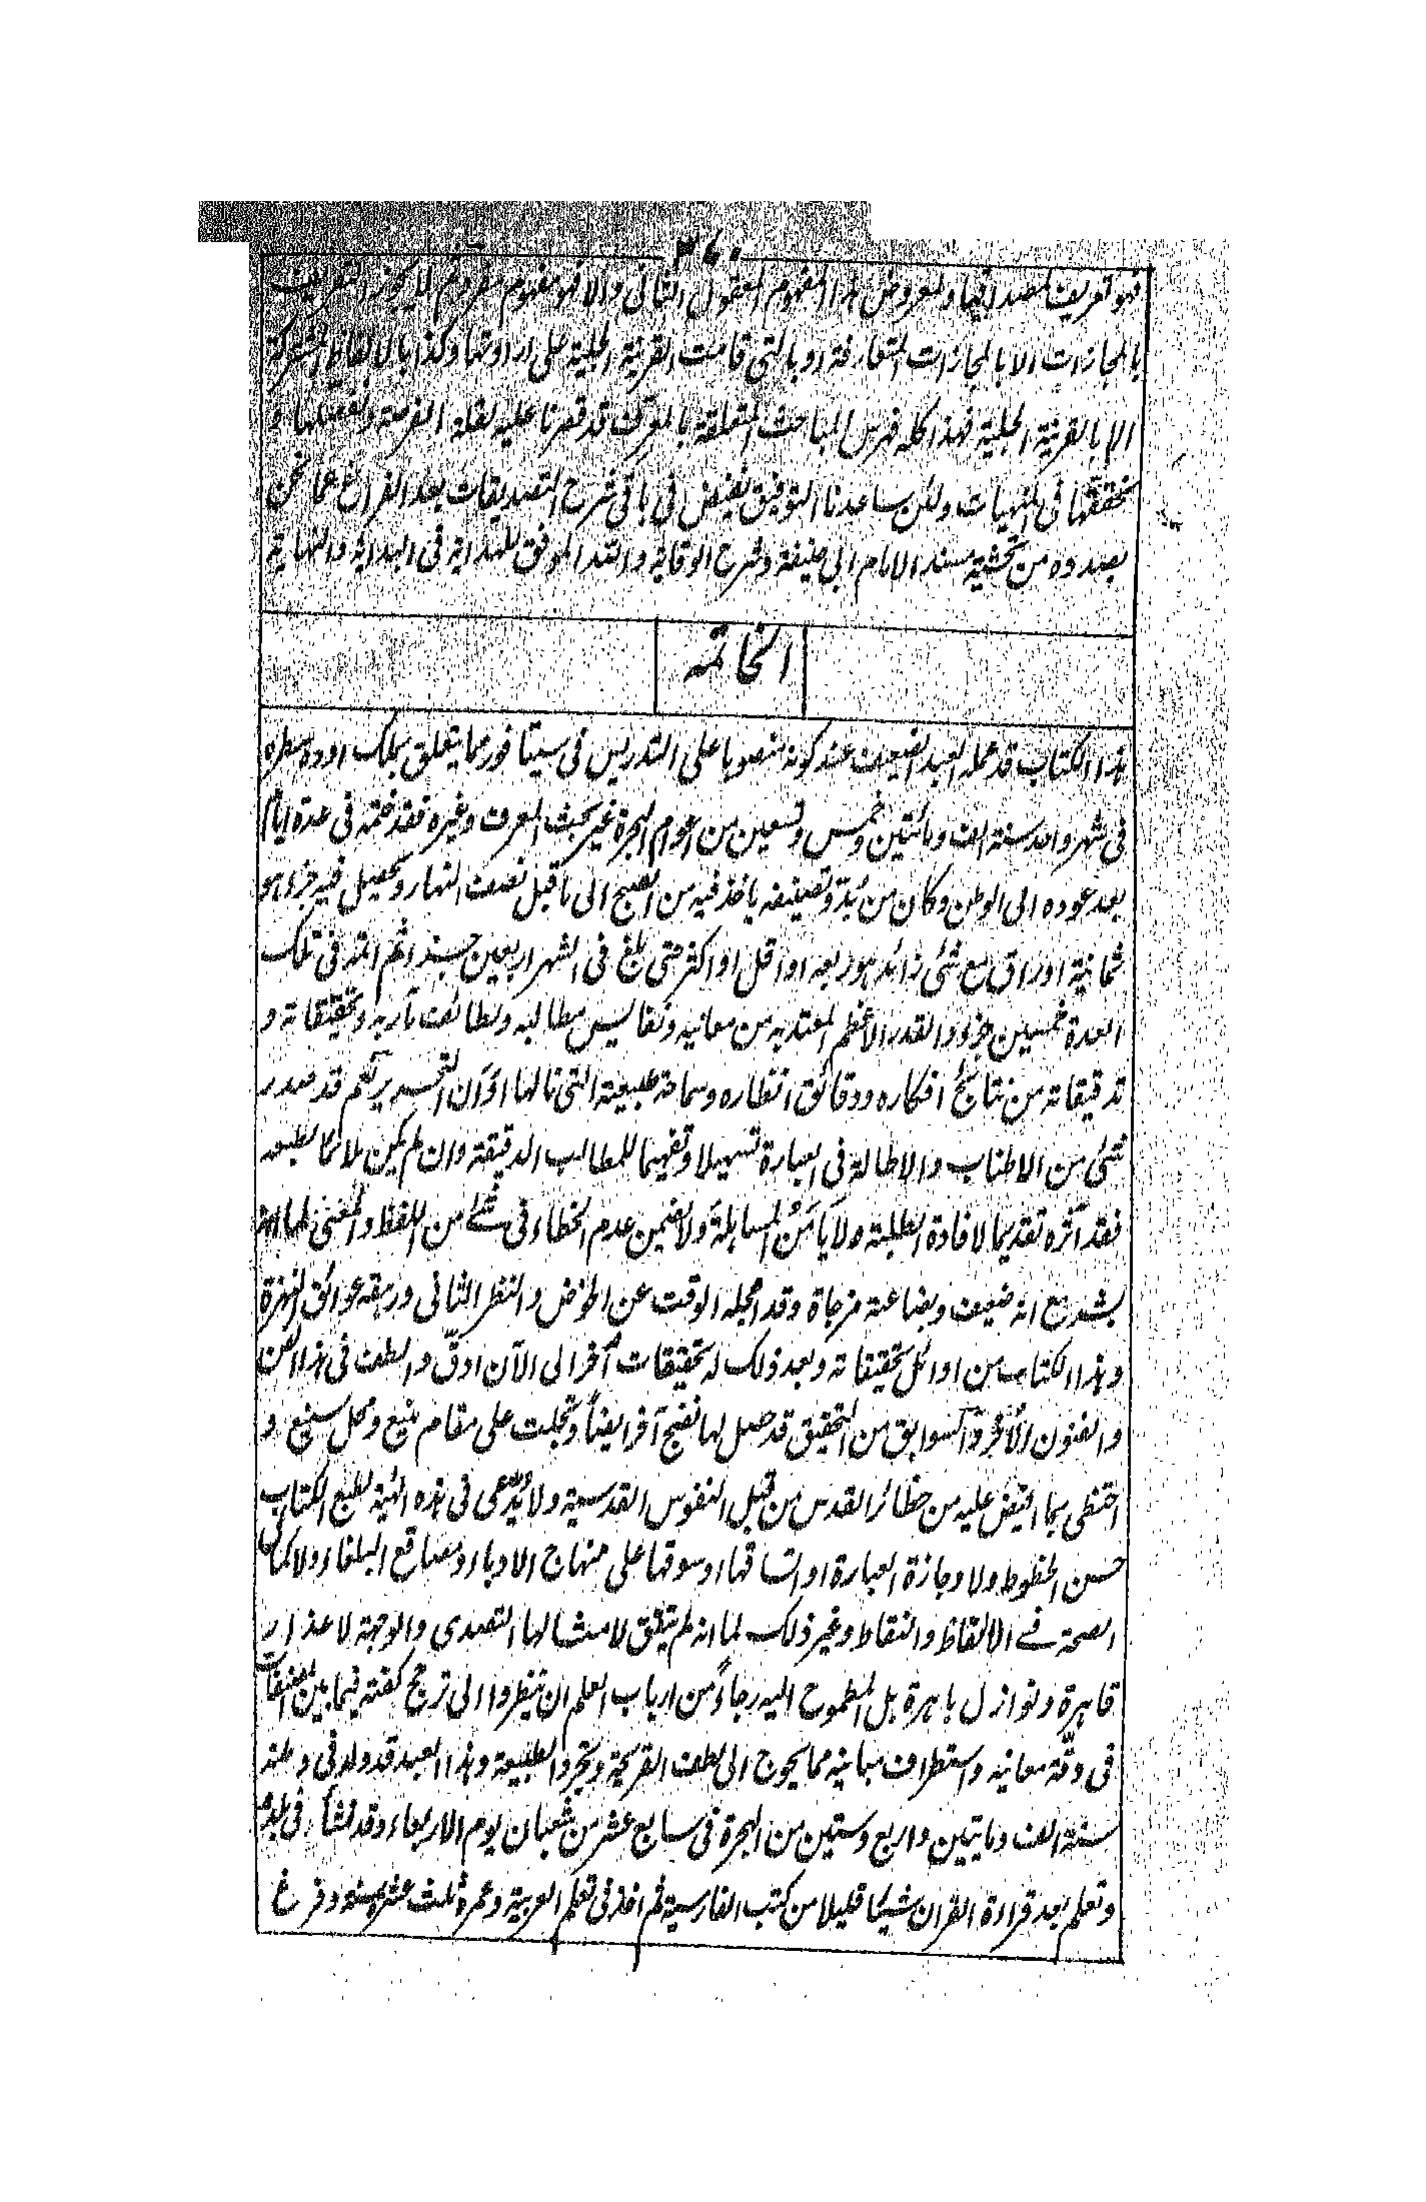 ٣٤٠
فهو تعريف لمصداقها ومعروض لهذا المفهوم المعقول الثاني والا فهو مفهوم ثم لا يجوز التعريف
بالمجازات الا بالمجازات المتعارفة او بالتي قامت القرينة الجلية على ارادتها وكذا بالالفاظ المشتركة
الا بالقرينة الجلية فهذا كله فهرس المباحث المتعلقة بالمعرف قد قصرنا عليه لقلة الفرصة ونفصلها و
نحققها في المنهيات ولئن ساعدنا التوفيق نفيض في باقي شرح التصديقات بعد الفراغ عما نحن
بصدده من تحشية مسند الامام ابي حنيفة وشرح الوقاية والله الموفق للهداية في البداية والنهاية
الخاتمه
هذا الكتاب قد عمله العبد الضعيف عند كونه منصوبا على التدريس في سيتافور مما يتعلق بملك اوده سطره
في شهر واحد سنة الف ومائتين وخمس وتسعين من اعوام الهجرة غير بحث المعرف وغيره فقد ختمه في عدة ايام
بعد عوده الى الوطن وكان من بدو تصنيفه ياخذ فيه من الصبح الى ما قبل نصف النهار ويحصل فيه جزء هو
ثمانية اوراق مع شئ زائد هو ربعه او اقل او اكثر حتى بلغ في الشهر اربعين جزء ثم اتمه في تلك
العدة خمسين جزء والقدر الاعظم المعتد به من معانيه ونفائيس مطالبه ولطائف مآربه وتحقيقاته و
تدقيقاته من نتائج افكاره ودقائق انظاره وسماحة طبيعته التي نالها اوان التحرير نعم قد صدر
شئ من الاطناب والاطالة في العبارة تسهيلا وتفهيما للمطالب الدقيقة وان لم يكن ملائما لطبعه
فقد آثره تقديما لافادة الطلبة ولا يأمن المساهلة ولا يضمن عدم الخطاء في شئ من اللفظ والمعنى لما انه
بشر مع انه ضعيف وبضاعته مزجاة وقد اعجله الوقت عن الخوض والنظر الثاني ورهقه عوائق النهزة
وهذا الكتاب من اوائل تحقيقاته وبعد ذلك له تحقيقات أخر الى الآن ادق والطف في هذا الفن
والفنون الأخر والسوابق من التحقيق قد حصل لها نضج آخر ايضاً وتجلت على مقام منيع ومحل سنيع و
احتظى بما افيض عليه من حظائر القدس من قبل النفوس القدسية ولا يدعى في هذه الهيئة لطبع الكتاب
حسن الخطوط ولا وجازة العبارة او اتساقها او سوقها على منهاج الادباء ومصاقع البلغاء ولا كمال
الصحة في الالفاظ والنقاط وغير ذلك لما انه لم يتفق لامثالها التصدى والوجهة لاعذار
قاهرة ونوازل باهرة بل المطموح اليه رجاءً من ارباب العلم ان ينظروا الى ترجح كفته فيما بين المصنفات
في دقة معانيه واستطراف مبانيه مما يحوج الى لطف القريحة وتجرد الطبيعة وهذا العبد قد ولد في وطنه
سنة الف ومايتين واربع وستين من الهجرة في سابع عشر من شعبان يوم الاربعاء وقد نشأ في بلده
وتعلم بعد قراءة القران شيئا قليلا من كتب الفارسية ثم اخذ في تعلم العربية وعمره ثلث عشرة سنة وفرغ